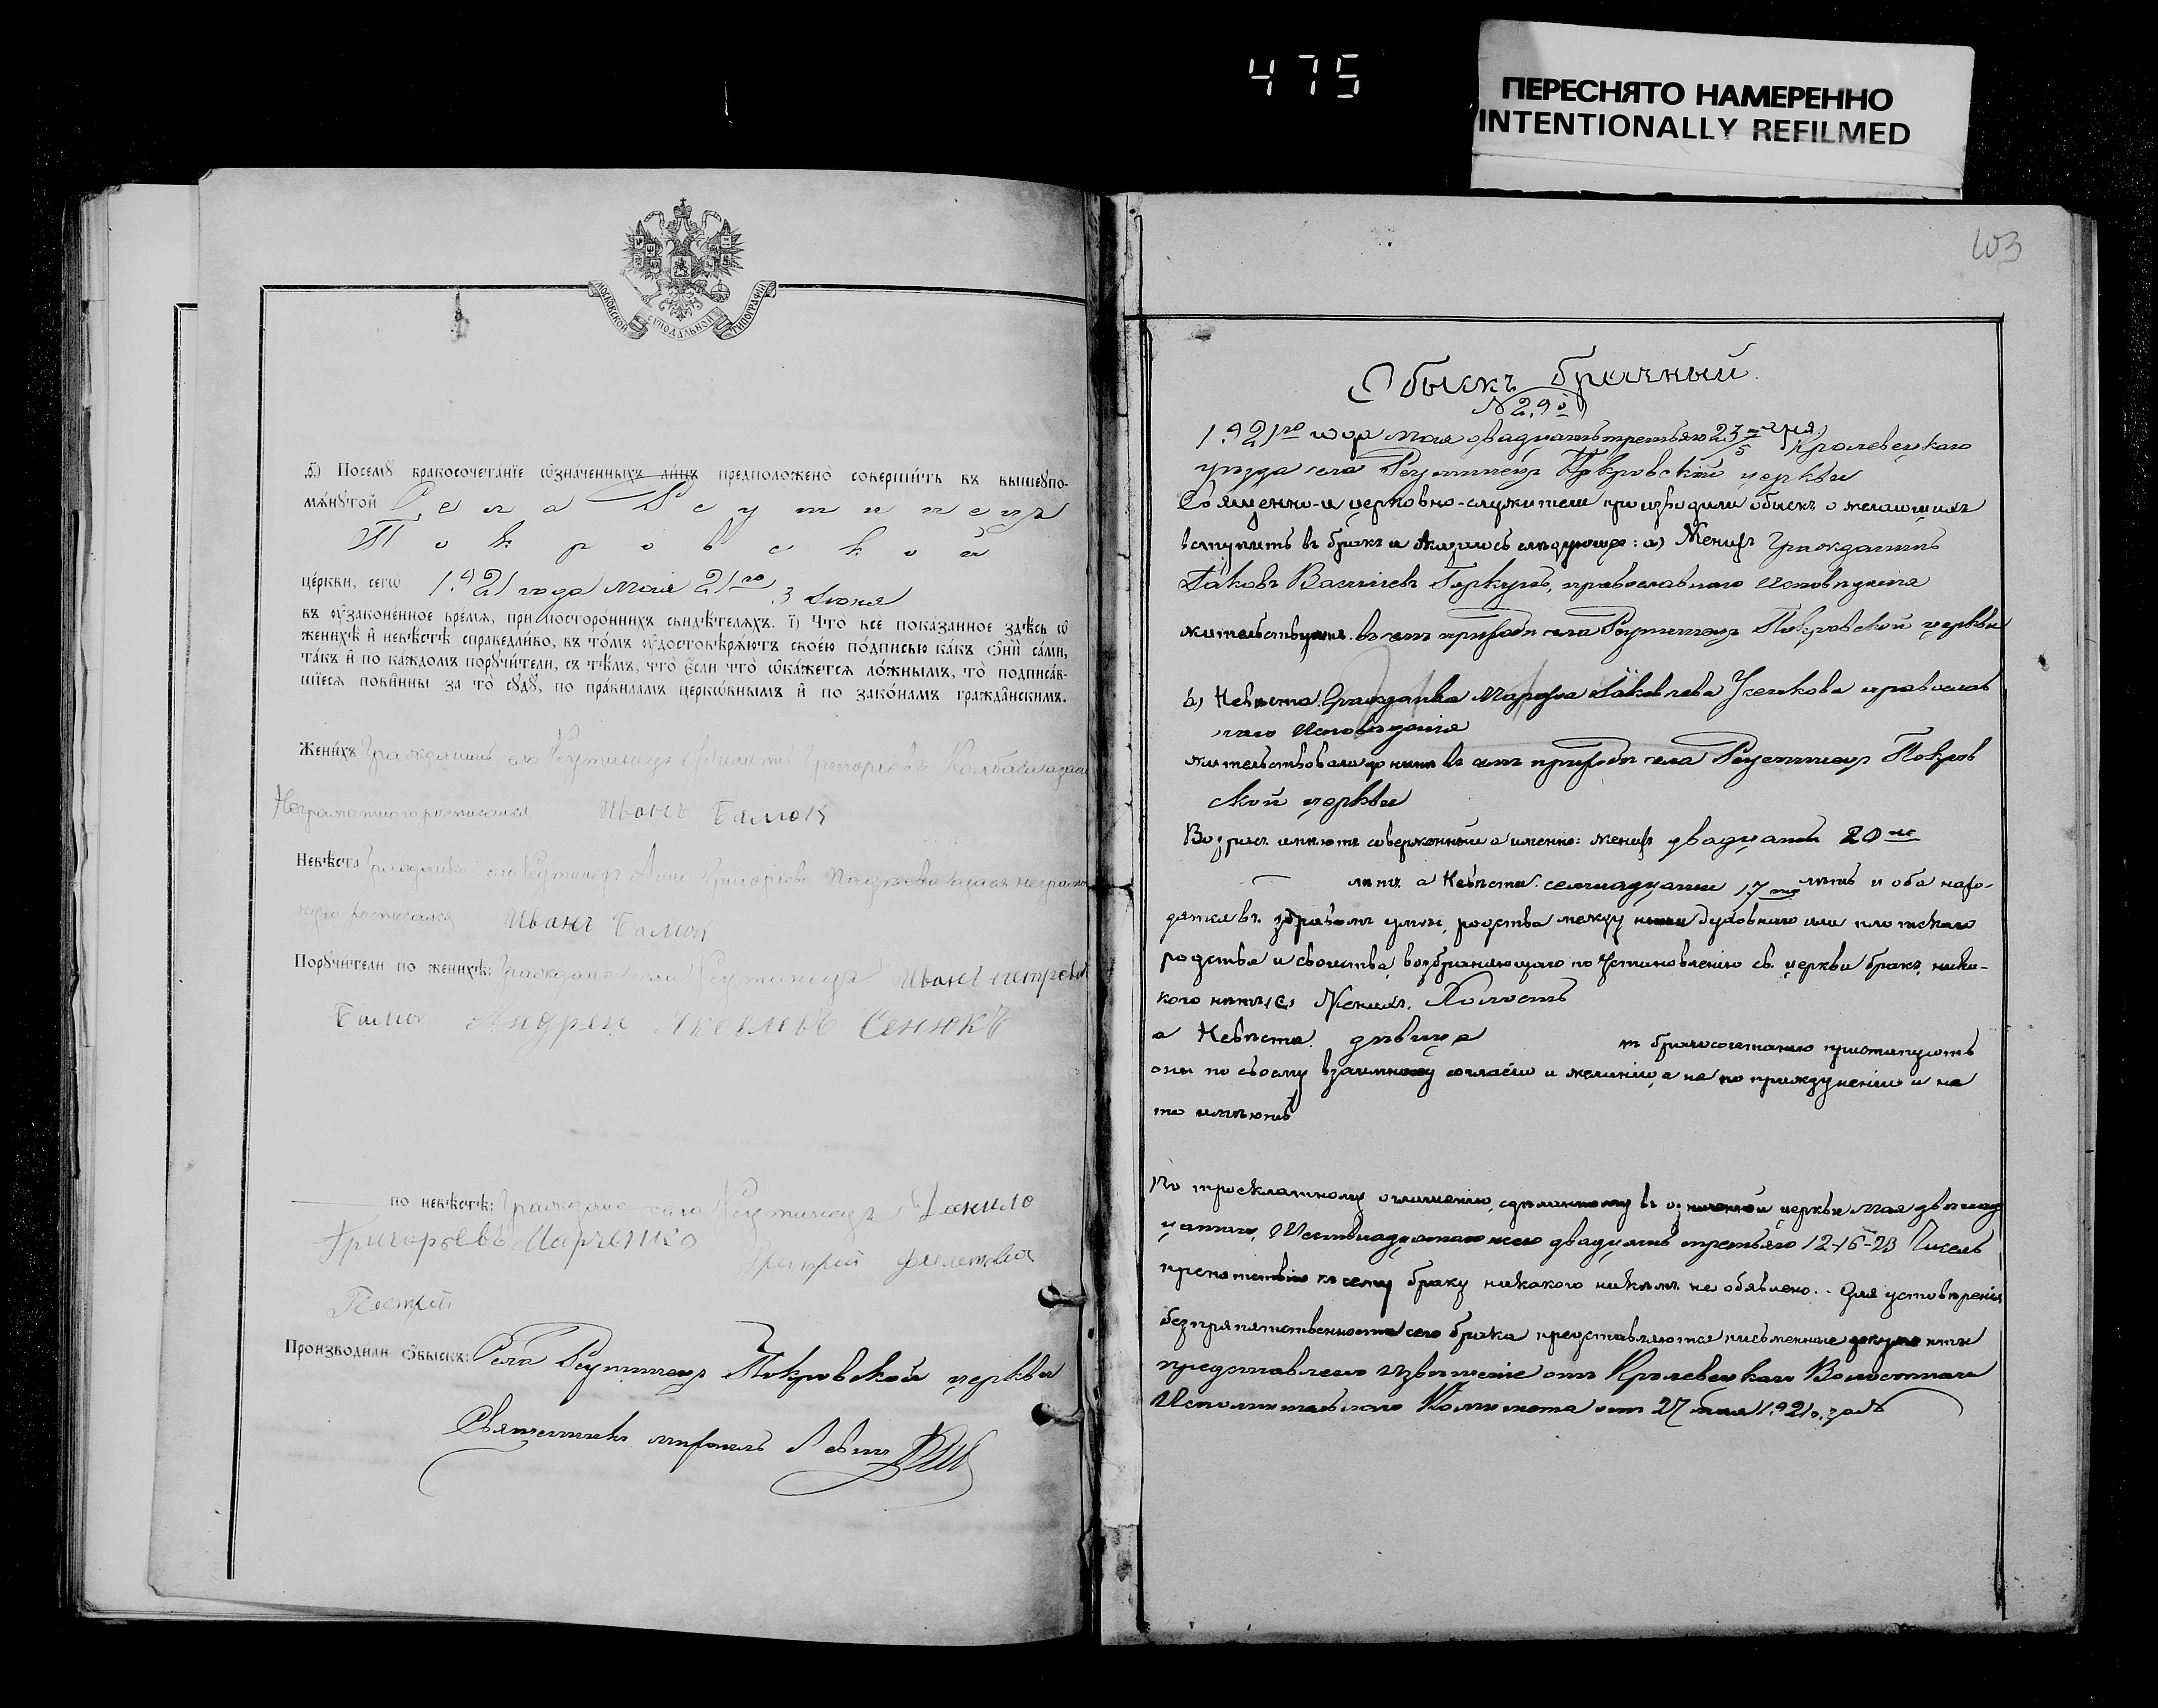 475
ПЕРЕСНЯТО НАМЕРЕННО
INTENTIONALLY REFILMED
103
МОСКОВСКОЙ СѴНОДАЛЬНОЙ ТИПОГРАФІИ
Посемꙋ бракосочетаніе ѡзначенныхъ лицъ предположено совершить въ вышеꙋпо-
мѧнꙋтой Села Реутинецъ
Покровской
церкви, сегѡ 1921 года мая 21го 3 Іюня
въ ᲂузаконенное времѧ, при постороннихъ свидѣтелѧхъ. і) Что все показанное здѣсь ѡ
женихѣ и невѣстѣ справедливо, въ томъ ᲂудостовѣрѧютъ своею подписью какъ ѻни сами,
такъ и по каждомъ порꙋчители, съ тѣмъ, что если что ѡкажетсѧ ложнымъ, то подписав-
шіесѧ повинны за то сꙋдꙋ, по правиламъ церковнымъ и по законамъ гражданскимъ.
Женихъ Гражданинъ села Реутинецъ Григорьевъ Колбаса
Неграмотного росписался Иванъ Балюк
Невѣста Гражданка села Реутинецъ Анна Григорьева
росписался Иванъ Балюк
Порꙋчители по женихѣ: Граждане села Реутинецъ Иванъ Петров
Балюк Андрей Яковлевъ Сенюкъ
по невѣстѣ: Граждане села Реутинецъ Данило
Григорьевъ Марченко
Производили ѻбыскъ: Села Реутинецъ Покровской церкви
Священникъ
Обыскъ брачный
N 29й
1921го года мая двадцать третьяго 23 5 дня Кролевецкаго
уѣзда села Реутинецъ Покровской церкви
Священно-и церковно-служители производили обыскъ о желающихъ
вступить въ бракъ и оказалось слѣдующее: а) Женихъ Гражданинъ
Іаковъ Василіевъ Горкунъ, православнаго исповѣданія
жительствуетъ въ семъ приходѣ села Реутинецъ Покровской церкви
б) Невѣста Гражданка Марфа Іаковлева Усенкова православ
наго исповѣданія
жительствовала до нынѣ въ семъ приходѣ села Реутинецъ Покров
ской церкви
Возрастъ имѣютъ совершенный а именно: женихъ двадцати 20ти
лѣтъ а Невѣста семнадцати 17ти лѣтъ и оба нахо-
дятся въ здравомъ умѣ, родства между ними духовнаго или плотскаго
родства и свойства, возбраняющаго по установленію св. церкви бракъ, ника-
кого нѣтъ, Женихъ Холостъ
а Невѣста дѣвица къ бракосочетанію приступаютъ
они по своему взаимному согласію и желанію, а не по принужденію и на
то имѣютъ
По троекратному оглашенію, сдѣланному въ означенной церкви мая двѣнад
цатаго, Шестнадцатаго и двадцать третьяго 12-16-23 Чиселъ
препятствія къ сему браку никакого никѣмъ не объявлено. Для устовѣренія
безпрепятственности сего брака представляются письменные документы
предоставлено извѣщеніе отъ Кролевецкаго Волостнаго
Исполнительнаго Комитета отъ 27 мая 1921